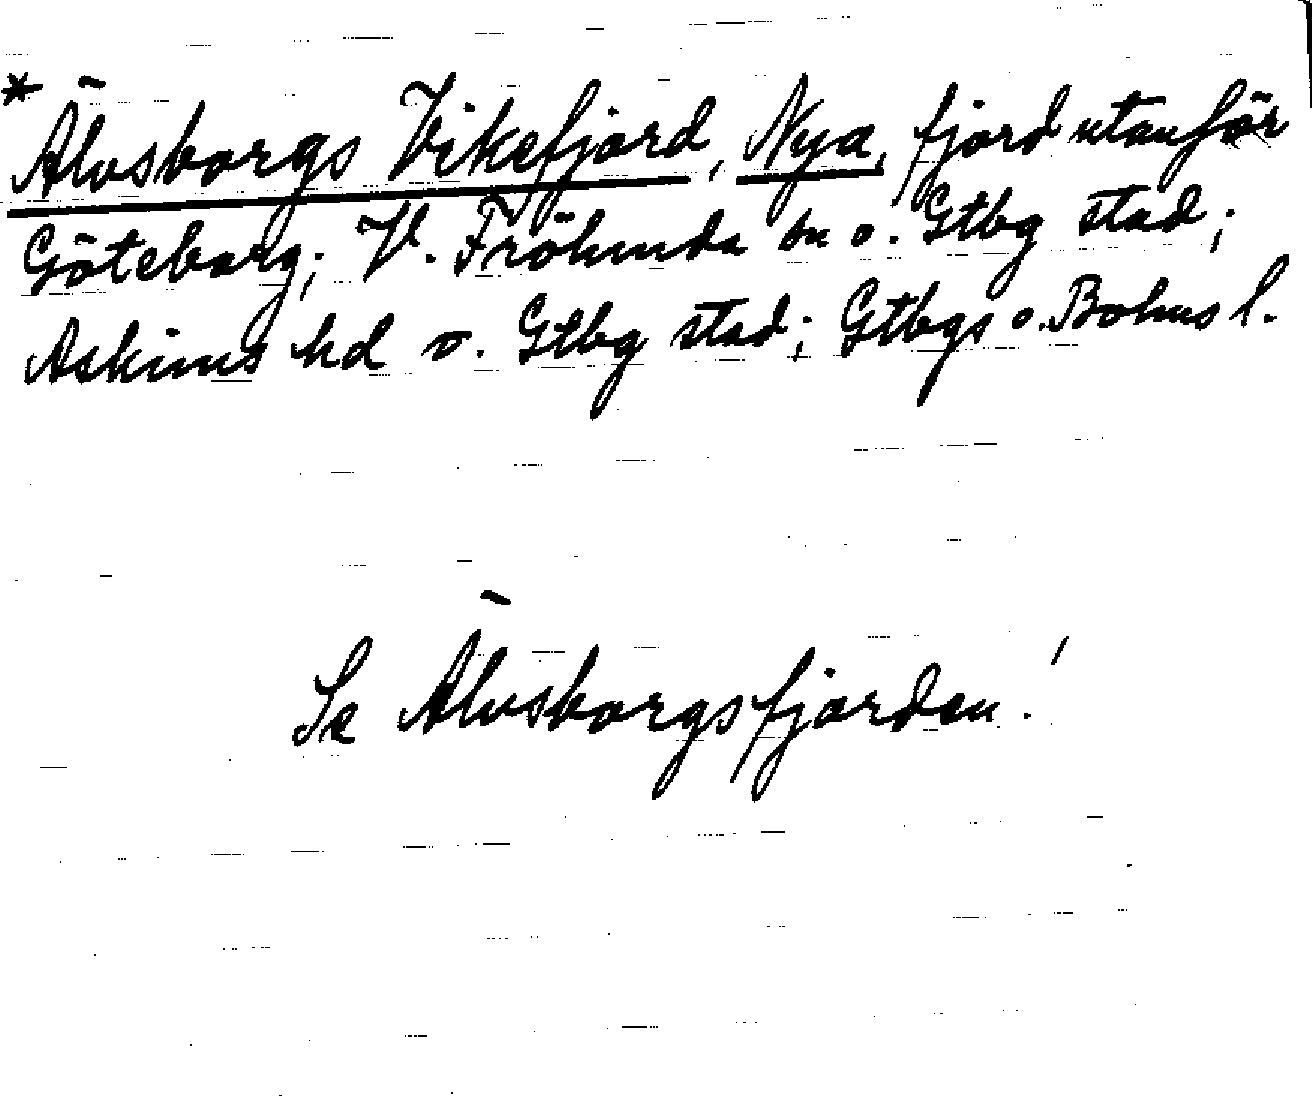 *Älvsborgs Vikefjord, Nya, fjord utanför
Göteborg; V. Frölunda sn o. Gtbg stad;
Askims hd o. Gtbg stad; Gtbgs o. Bohus l.
Se Älvsborgsfjorden!